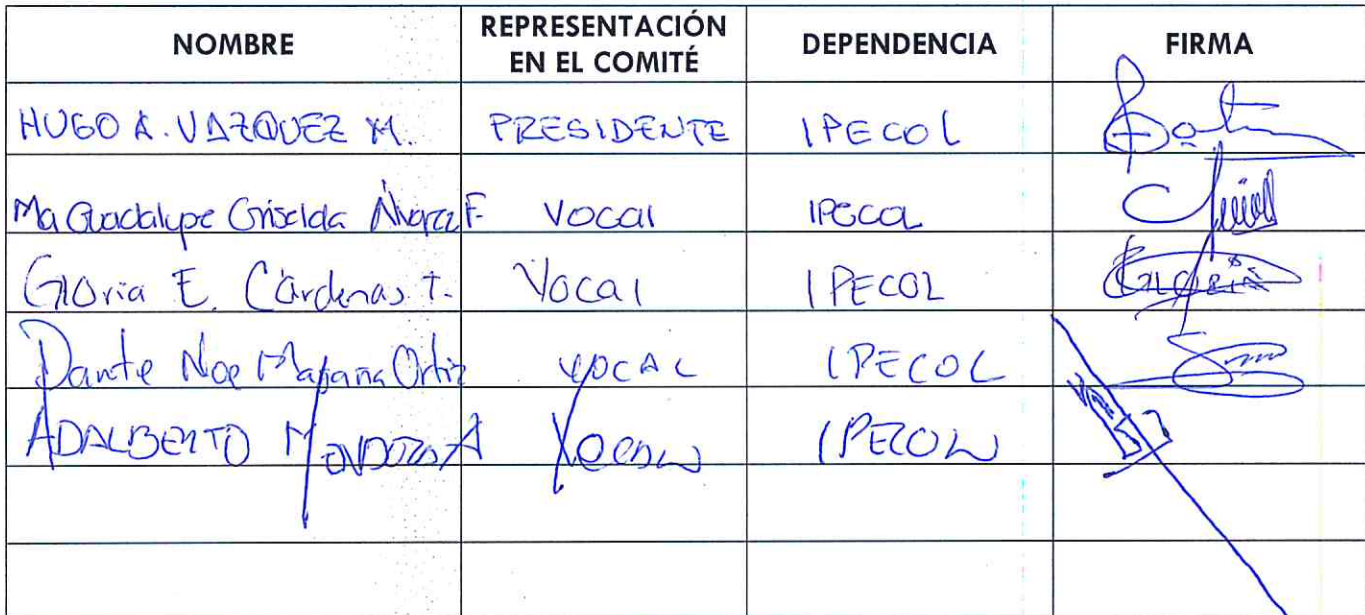 NOMBRE REPRESENTACIÓN EN EL COMITÉ DEPENDENCIA FIRMA
HUGO A. VAZQUEZ M. PRESIDENTE IPECOL
Ma Guadalupe Griselda Álvarez F. Vocal IPECOL
Gloria E. Cárdenas T. Vocal IPECOL
Dante Noe Magaña Ortiz VOCAL IPECOL
ADALBERTO MENDOZA VOCAL IPECOL